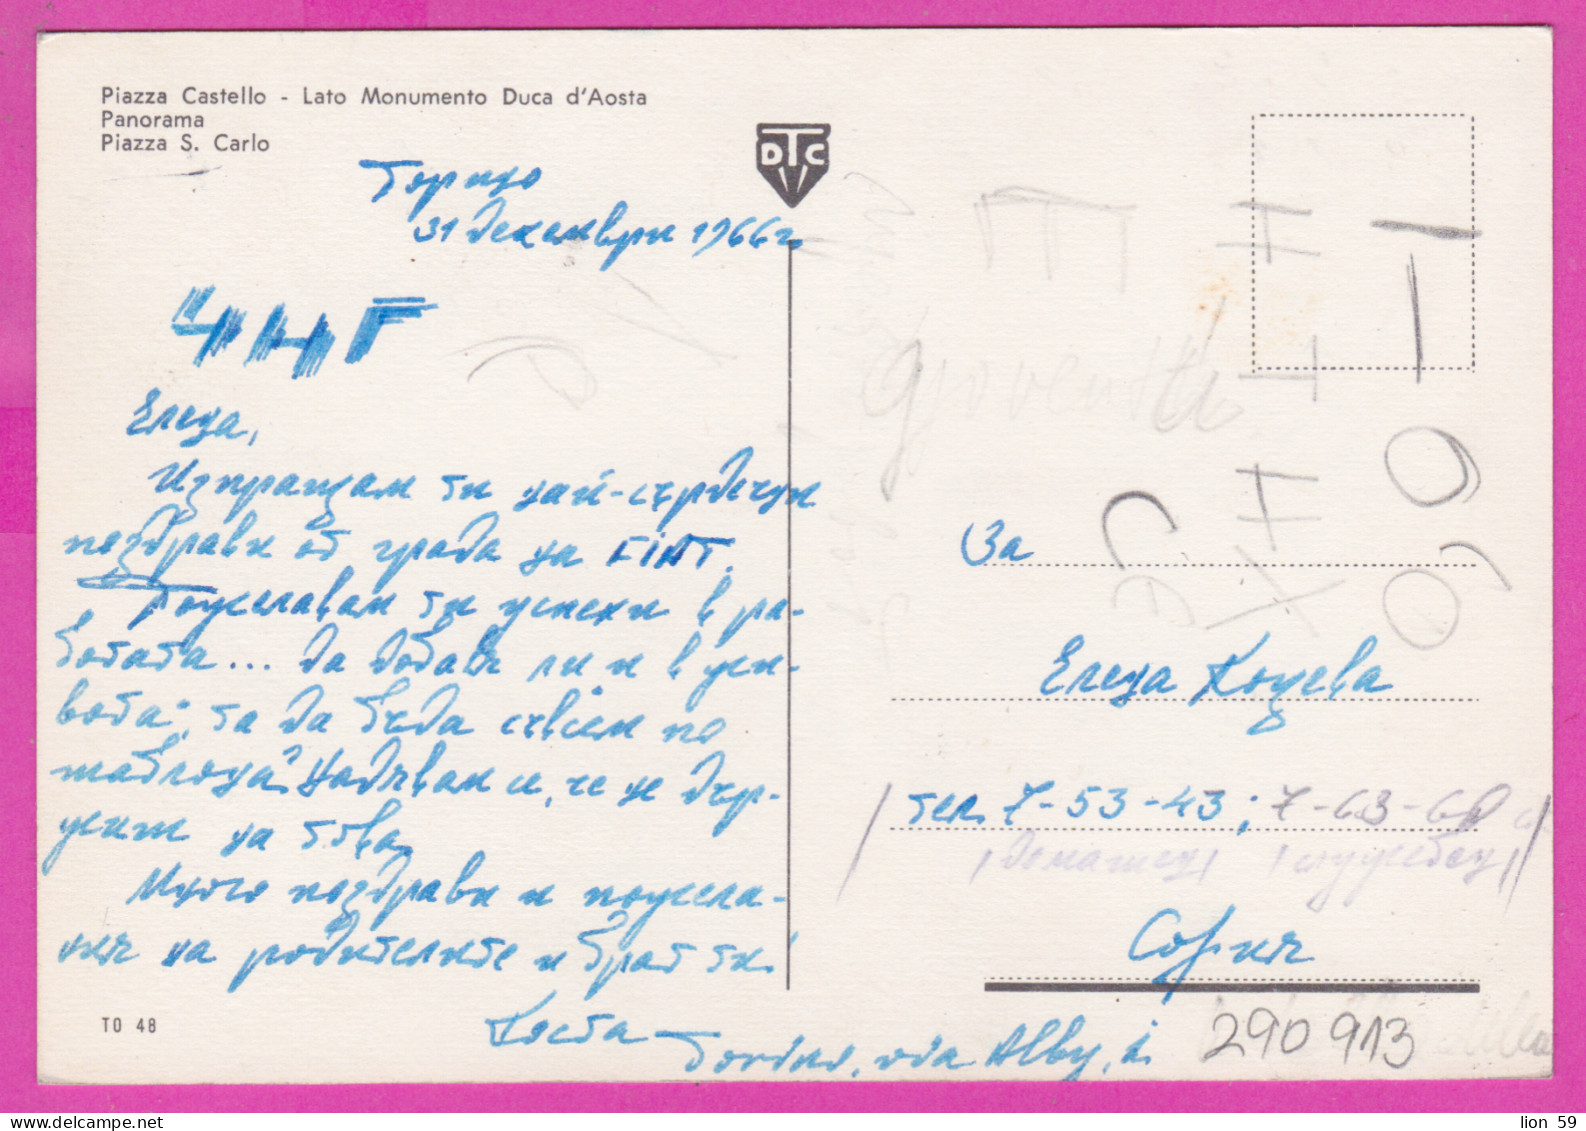 Piazza Castello - Lato Monumento Duca d'Aosta
Panorama
Piazza S. Carlo
DTC
Торино
31 декември 1966 г.
ЧНГ
Елена,
Изпращам ти най-сърдечни
поздрави от града на FIAT.
Пожелавам ти успехи в ра-
ботата... да добавя ли и в жи-
вота; та да бъда съвсем по
шаблона? Надявам се, че не дър-
жиш на това.
Много поздрави и пожела-
ния на родителите и брат ти!
Коста
Torino, via Alby,
TO 48
За
Елена Коцева
тел. 7-53-43; 7-63-60
/домашен/ /служебен/
София
290 913
lion 59